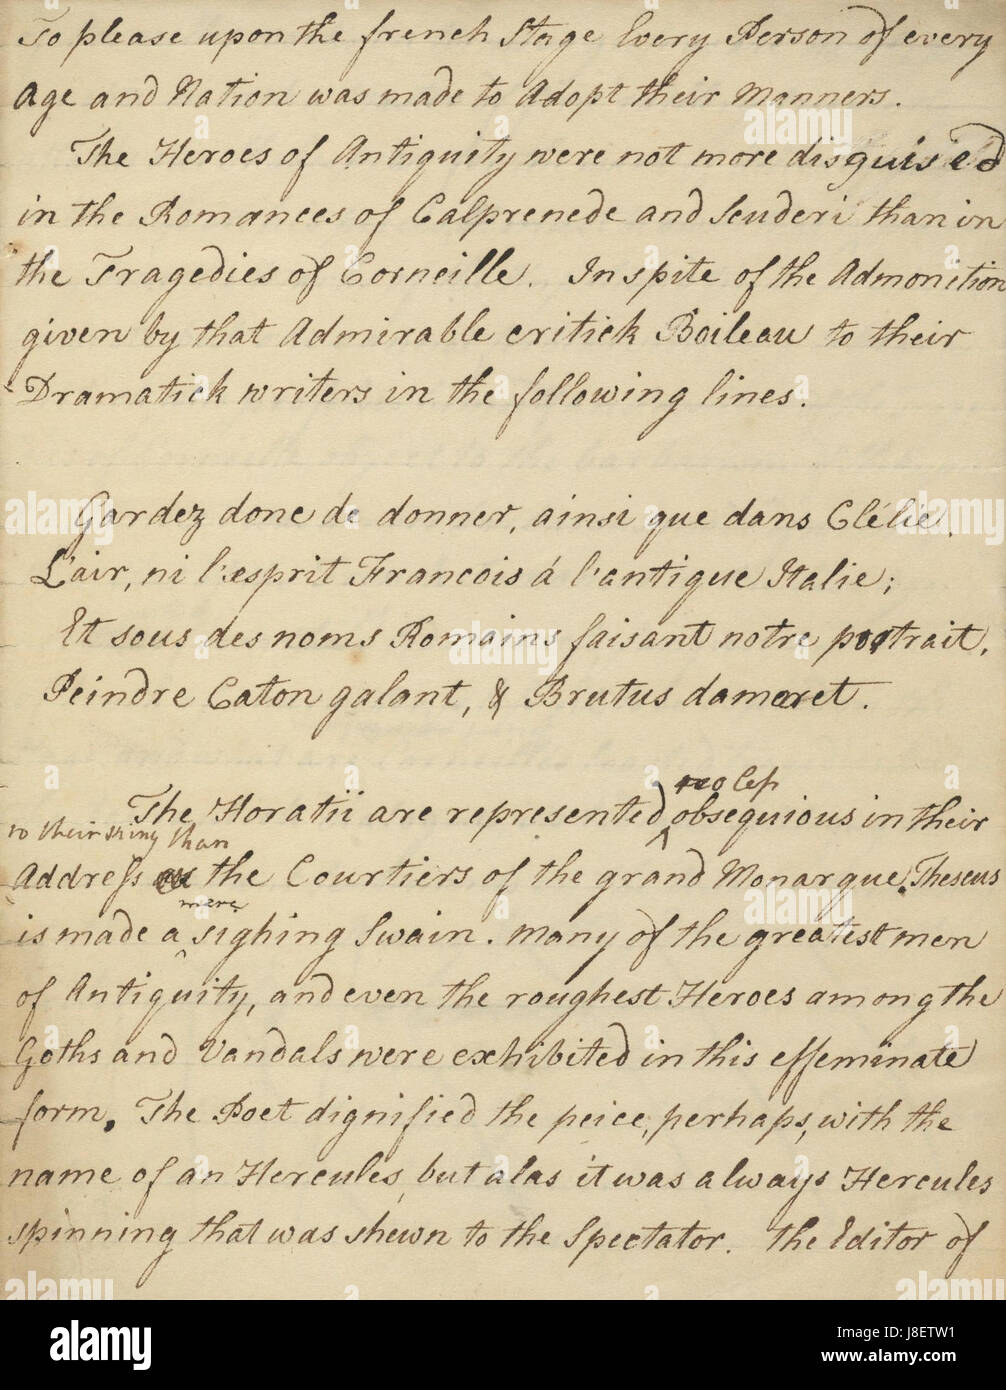 To please upon the french Stage Every Person of every
Age and Nation was made to Adopt their Manners.
The Heroes of Antiquity were not more disguised
in the Romances of Calprenede and Scuderi than in
the Tragedies of Corneille. In spite of the Admonition
given by that Admirable critick Boileau to their
Dramatick writers in the following lines.
Gardez donc de donner, ainsi que dans Clélie.
L'air, ni l'esprit Francois á l'antique Italie;
Et sous des noms Romains faisant notre portrait,
Peindre Caton galant, & Brutus dameret.
no less
The Horatii are represented obsequious in their
to their King than
Address the Courtiers of the grand Monarque. Theseus
mere
is made a sighing Swain. Many of the greatest men
of Antiquity, and even the roughest Heroes among the
Goths and Vandals were exhibited in this effeminate
form. The Poet dignified the peice, perhaps, with the
name of an Hercules, but alas it was always Hercules
spinning that was shewn to the Spectator. the Editor of
alamy
Image ID: J8ETW1
www.alamy.com